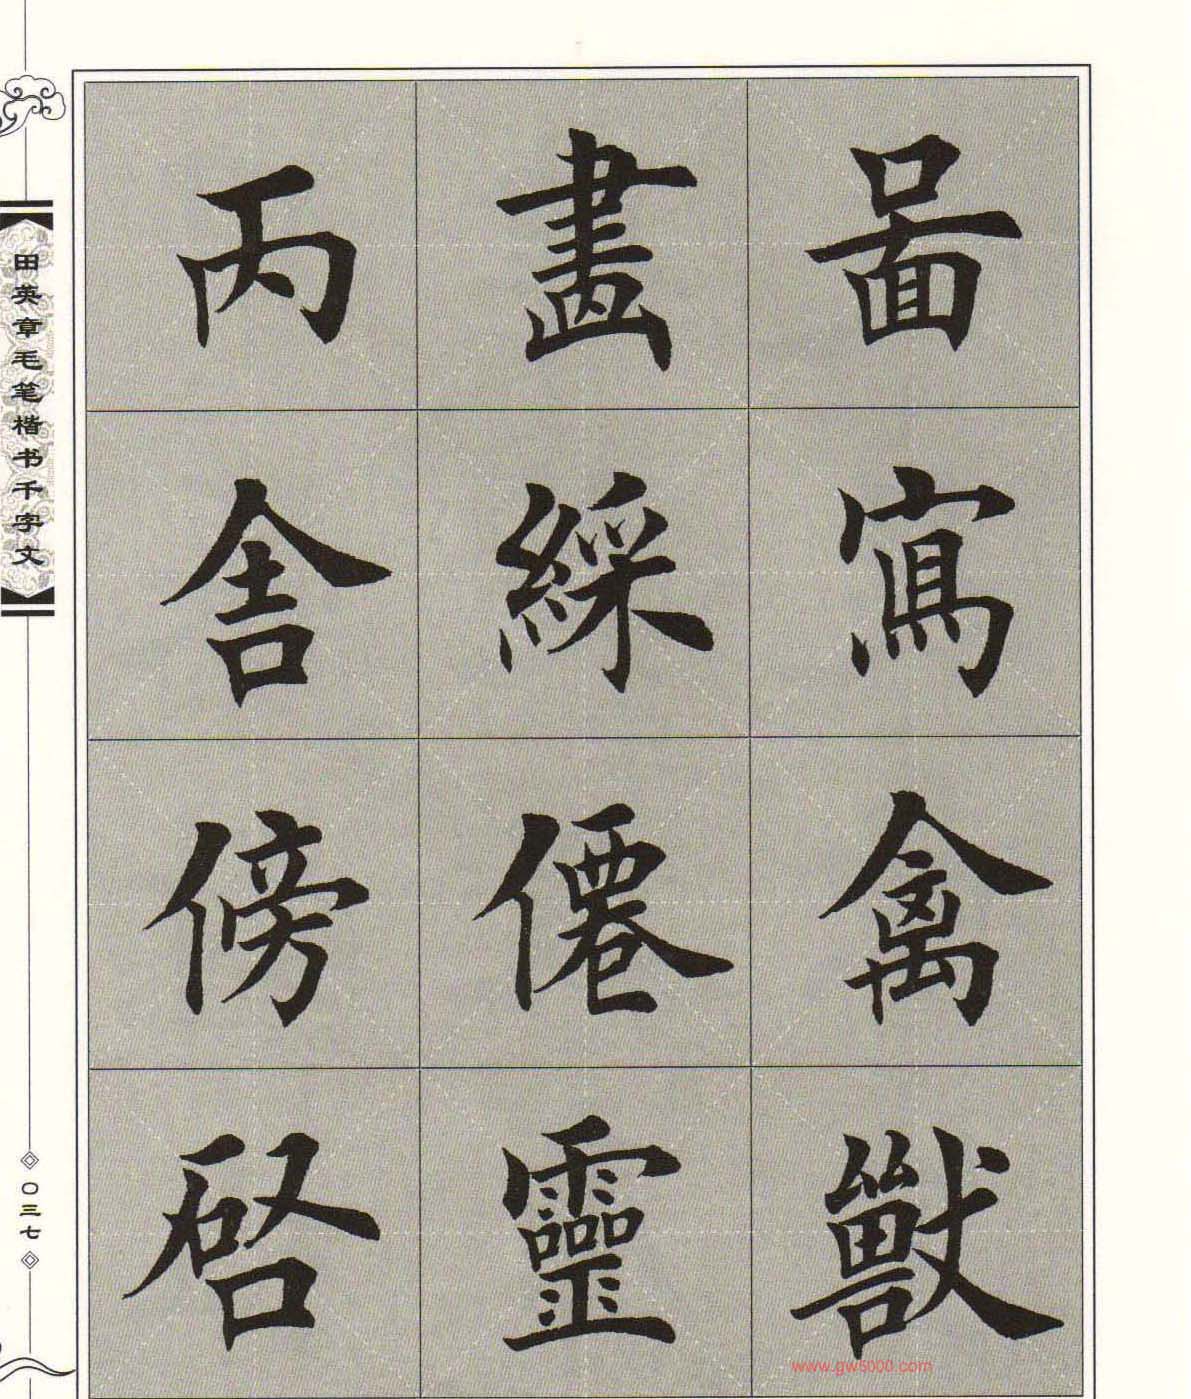 啚寫禽獸
畫綵僊靈
丙舎傍啓
田英章毛笔楷书千字文
〇三七
www.gw5000.com